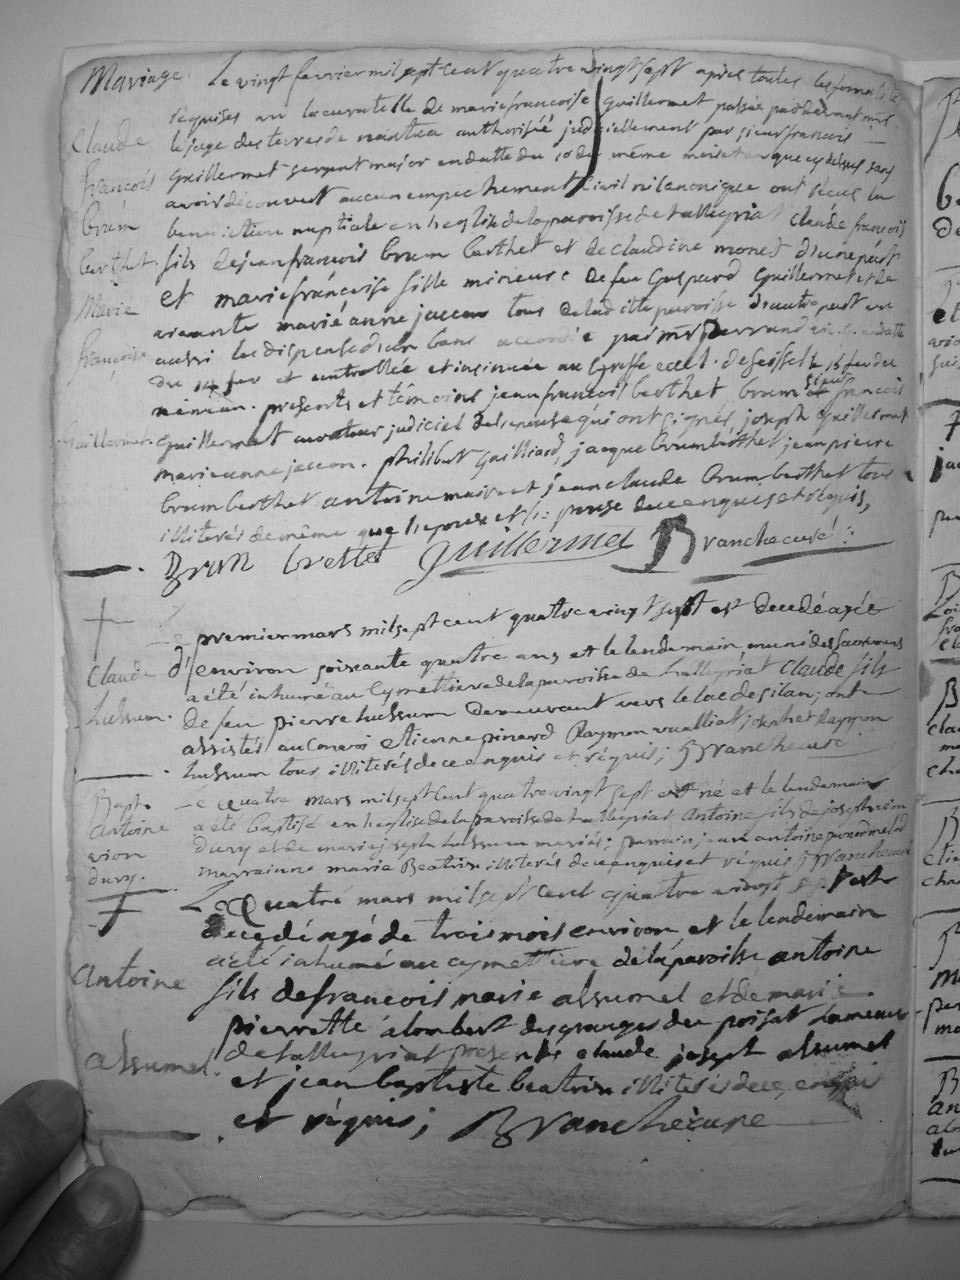 Mariage
Claude
françois
brun
berthet
Marie
françoise
guillermet
Le vingt fevrier mil sept cent quatre vingt sept apres toutes les formalités
requises vu la curatelle de marie francoise guillermet passée pardevant
le juge des terres de nantua authorisée judiciellement par sieur francois
guillermet sergent major en datte du 10 du même mois et an que cy dessus sans
avoir découvert aucun empechement civil ni canonique ont reçus la
benediction nuptiale en l'eglise de la paroisse de talleyriat claude françois
fils de jean françois brun berthet et de claudine monet d'une part
et marie françoise fille mineure de feu Gaspard Guillermet et de
vivante marie anne jaccon tous de laditte paroisse d'autre part vu
aussi la dispense d'un banc accordée par mr
du 14 fev et controllée et insinuée au Greffe eccl. de seissel le 15 fev du
même an. presents et témoins jean francois berthet brun et sieur francois
guillermet curateur judiciel de l'epouse qui ont signés, joseph guillermet
marie anne jaccon. philibert Guilliard, jacque brun berthet jean pierre
brun berthet antoine maire et jean claude brun berthet tous
illiterés de même que l'epouse et l'epouse de ce enquis et requis,
Brun brettet Guillermet Branche curé
Claude
hussum.
premier mars mil sept cent quatre vingt sept est decedé agée
d'environ soixante quatre ans et le lendemain, muni des sacremens
a été inhumé au cymettiere de la paroisse de talleyriat claude fils
de feu pierre hussum demeurant vers le lac de silan; ont
assistés au convoi etienne pinard Raymon vualliat, joseph et Raymon
hussum tous illiterés de ce enquis et réquis; Branche curé
Bapt.
antoine
vion
dury.
Le quatre mars mil sept cent quatre vingt sept est né et le lendemain
a été baptisé en l'eglise de la paroisse de talleyriat Antoine fils de joseph vion
dury et de marie joseph hussum mariés; parrain jean antoine
marrainne marie Beatrix illiterés de ce enquis et réquis Branche curé
antoine
assumel.
Le Quatre mars mil sept cent quatre vingt sept est
decedé agé de trois mois environ et le lendemain
a été inhumé au cymettiere de la paroisse antoine
fils de francois marie assumel et de marie
pierrette alombert des granges du poisat hameau
de talleyriat presents claude joseph assumel
et jean baptiste beatrix illiterés de ce enquis
et réquis; Branche curé